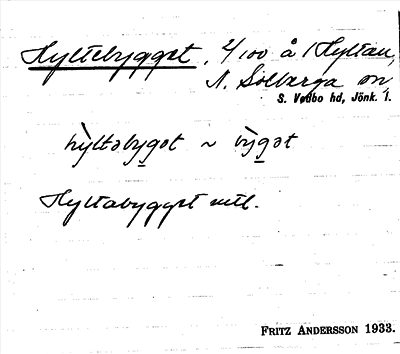 Hyltebygget, 2/100 å 1 Hyltan,
N. Solberga sn,
S. Vedbo hd, Jönk. l.
hyltəbygət ~ bygət
Hyltabygget mtl.
FRITZ ANDERSSON 1933.